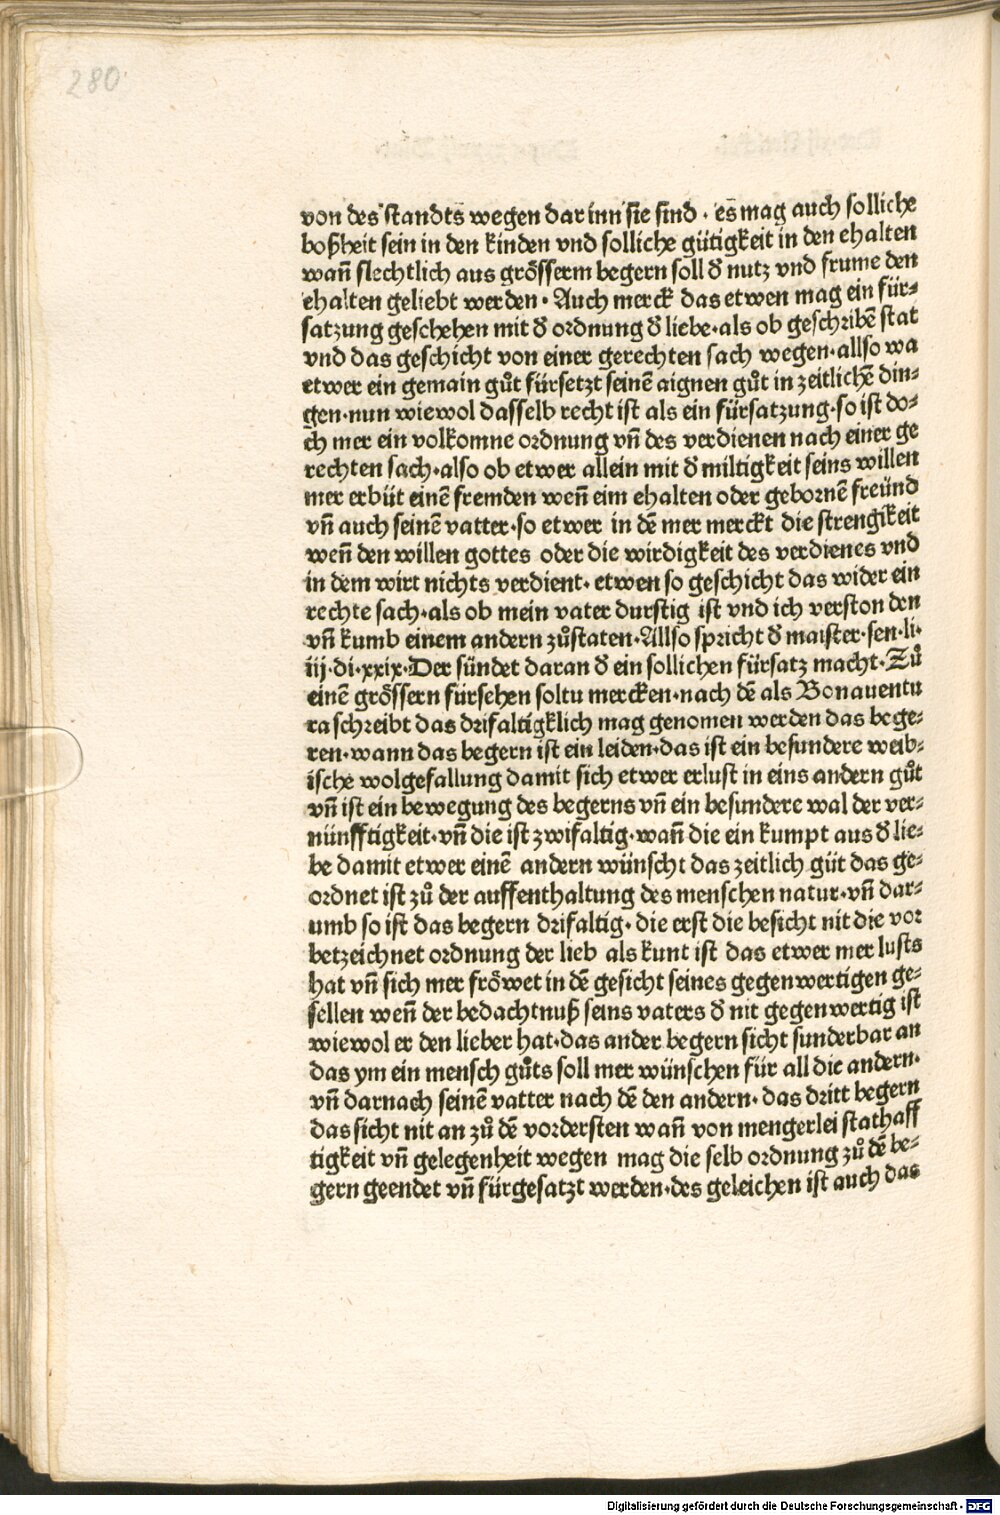 280
von des standts wegen dar inn sie sind · es mag auch solliche
boßheit sein in den kinden vnd solliche gütigkeit in den ehalten
wañ slechtlich aus grösserm begern soll d̄ nutz vnd frume den
ehalten geliebt werden · Auch merck das etwen mag ein für⸗
satzung geschehen mit d̄ ordnung d̄ liebe · als ob geschribē stat
vnd das geschicht von einer gerechten sach wegen · allso wa
etwer ein gemain gůt fürsetzt seinē aignen gůt in zeitlichē din⸗
gen · nun wiewol dasselb recht ist als ein fürsatzung · so ist do⸗
ch mer ein volkomne ordnung vñ des verdienen nach einer ge
rechten sach · also ob etwer allein mit d̄ miltigkeit seins willen
mer erbüt einē fremden weñ eim ehalten oder gebornē freünd
vñ auch seinē vatter · so etwer in dē mer merckt die strengikeit
weñ den willen gottes oder die wirdigkeit des verdienes vnd
in dem wirt nichts verdient · etwen so geschicht das wider ein
rechte sach · als ob mein vater durstig ist vnd ich verston den
vñ kumb einem andern zůstaten · Allso spricht d̄ maister · sen · li ·
iij · di · xxix · Der sündet daran d̄ ein sollichen fürsatz macht · Zů
einē grössern fürsehen soltu mercken · nach dē als Bonauentu
ra schreibt das drifaltigklich mag genomen werden das bege⸗
ren · wann das begern ist ein leiden · das ist ein besundere weib⸗
ische wolgefallung damit sich etwer erlust in eins andern gůt
vñ ist ein bewegung des begerns vñ ein besundere wal der ver⸗
nünfftigkeit · vñ die ist zwifaltig · wañ die ein kumpt aus d̄ lie⸗
be damit etwer einē andern wünscht das zeitlich güt das ge⸗
ordnet ist zů der auffenthaltung des menschen natur · vñ dar⸗
umb so ist das begern drifaltig · die erst die besicht nit die vor
betzeichnet ordnung der lieb als kunt ist das etwer mer lusts
hat vñ sich mer fröwet in dē gesicht seines gegenwertigen ge⸗
sellen weñ der bedachtnuß seins vaters d̄ nit gegenwertig ist
wiewol er den lieber hat · das ander begern sicht sunderbar an
das ym ein mensch gůts soll mer wünschen für all die andern ·
vñ darnach seinē vatter nach dē den andern · das dritt begern
das sicht nit an zů dē vordersten wañ von mengerlei stathaff
tigkeit vñ gelegenheit wegen mag die selb ordnung zů dē be⸗
gern geendet vñ fürgesatzt werden · des geleichen ist auch das
Digitalisierung gefördert durch die Deutsche Forschungsgemeinschaft - DFG